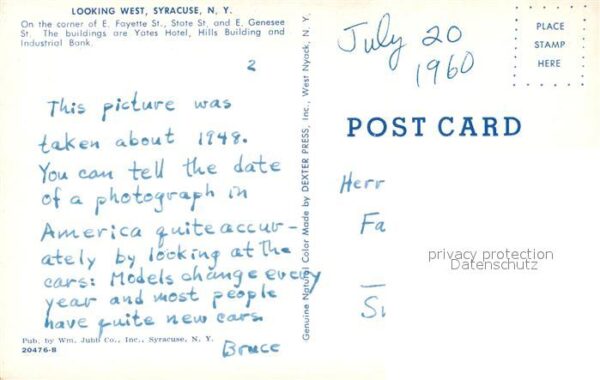 LOOKING WEST, SYRACUSE, N. Y.
On the corner of E. Fayette St., State St. and E. Genesee
St. The buildings are Yates Hotel, Hills Building and
Industrial Bank.
2
This picture was
taken about 1948.
You can tell the date
of a photograph in
America quite accur-
ately by looking at the
cars: Models change every
year and most people
have quite new cars.
Bruce
Pub. by Wm. Jubb Co., Inc., Syracuse, N. Y.
20476-B
Genuine Natural Color Made by DEXTER PRESS, Inc., West Nyack, N. Y.
July 20
1960
PLACE
STAMP
HERE
POST CARD
Herr
Fa
privacy protection
Datenschutz